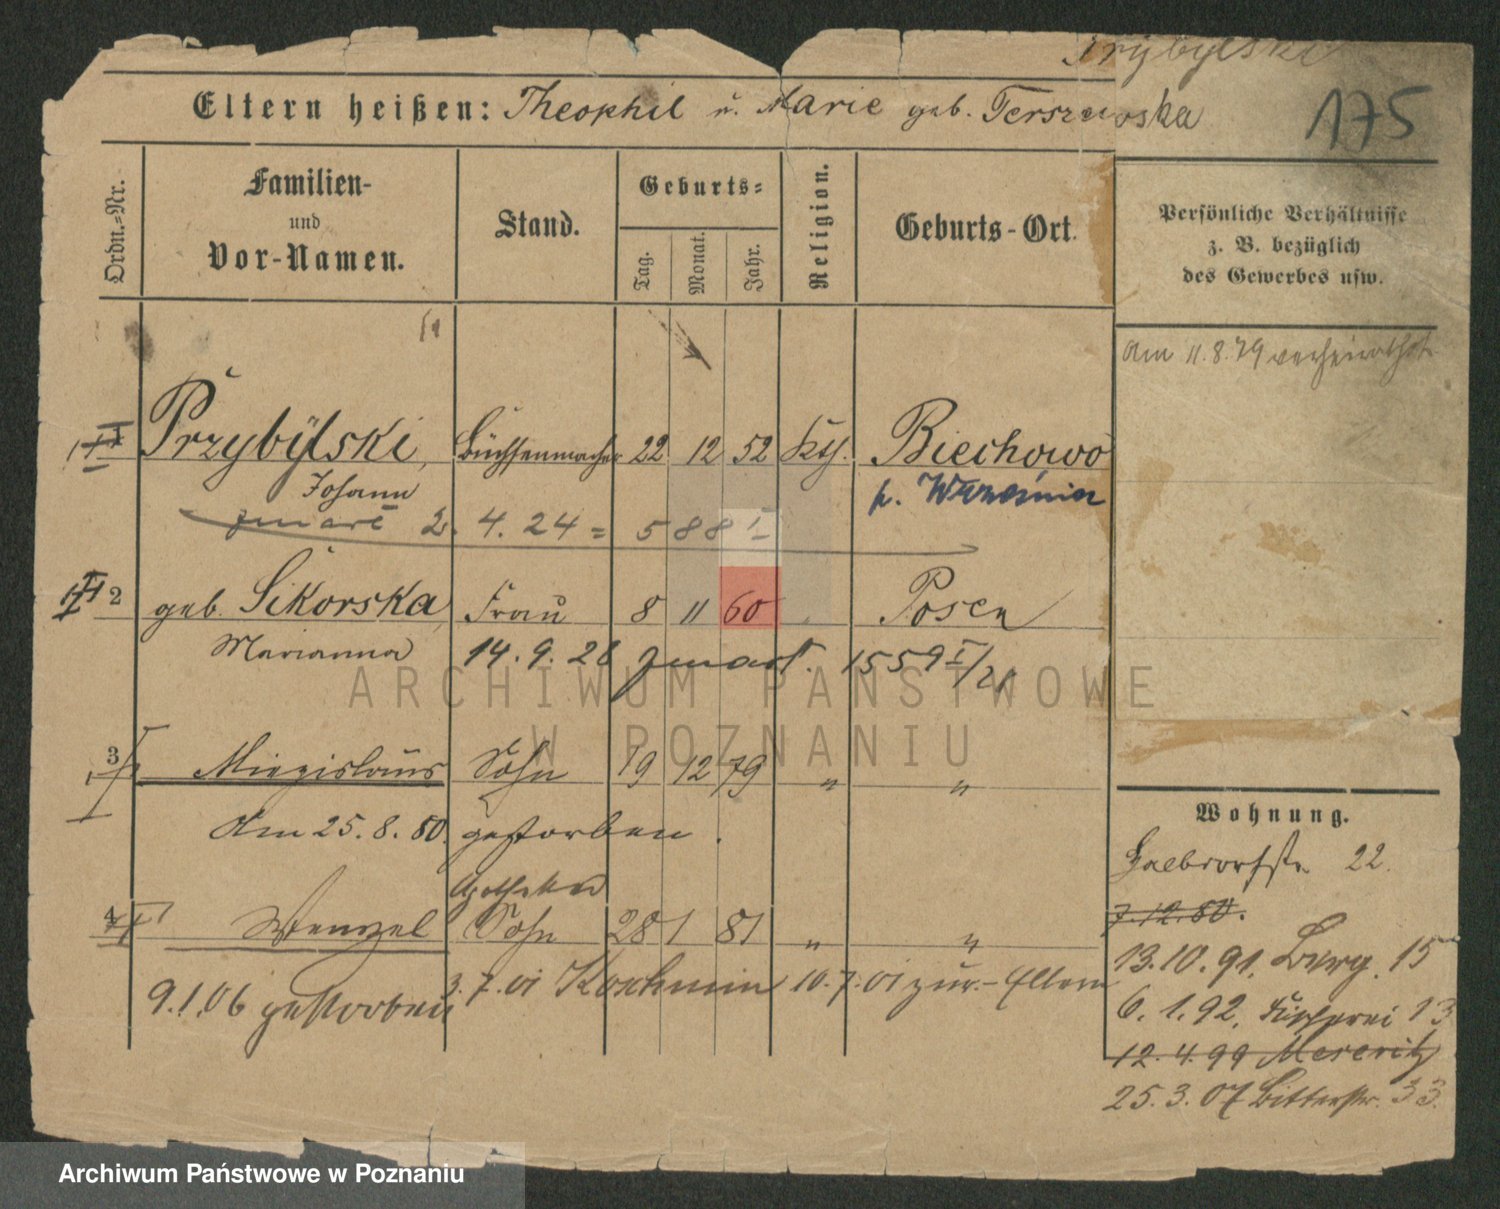 Przybylski
Eltern heißen: Theophil u. Marie geb. Terszewska
175
Ordn.-Nr.
Familien-
und
Vor-Namen.
Stand.
Geburts-
Tag. Monat. Jahr.
Religion.
Geburts-Ort.
Persönliche Verhältnisse
z. B. bezüglich
des Gewerbes usw.
Am 11.8.79 verheirathet
1 Przybÿlski, Büchsenmacher 22 12 52 kth. Biechowo
Johann
p. Września
zmarł 2. 4. 24 = 588 I
2 geb. Sikorska, Frau 8 11 60 Posen
Marianna 14. 9. 28 zmarł. 1559 I/21
3 Miezislaus Sohn 19 12 79 " "
Am 25. 8. 80. gestorben.
Apotheker
4 Wenzel Sohn 28 1 81 " "
9.1.06 gestorben 3.7.01 Koschmin 10.7.01 zur. Eltern
Wohnung.
22.
7.12.80.
13.10.91. Burg. 15
6.1.92. Fischerei 13
12.4.99 Meseritz
25.3.07 Bitterstr. 33.
ARCHIWUM PAŃSTWOWE
W POZNANIU
Archiwum Państwowe w Poznaniu